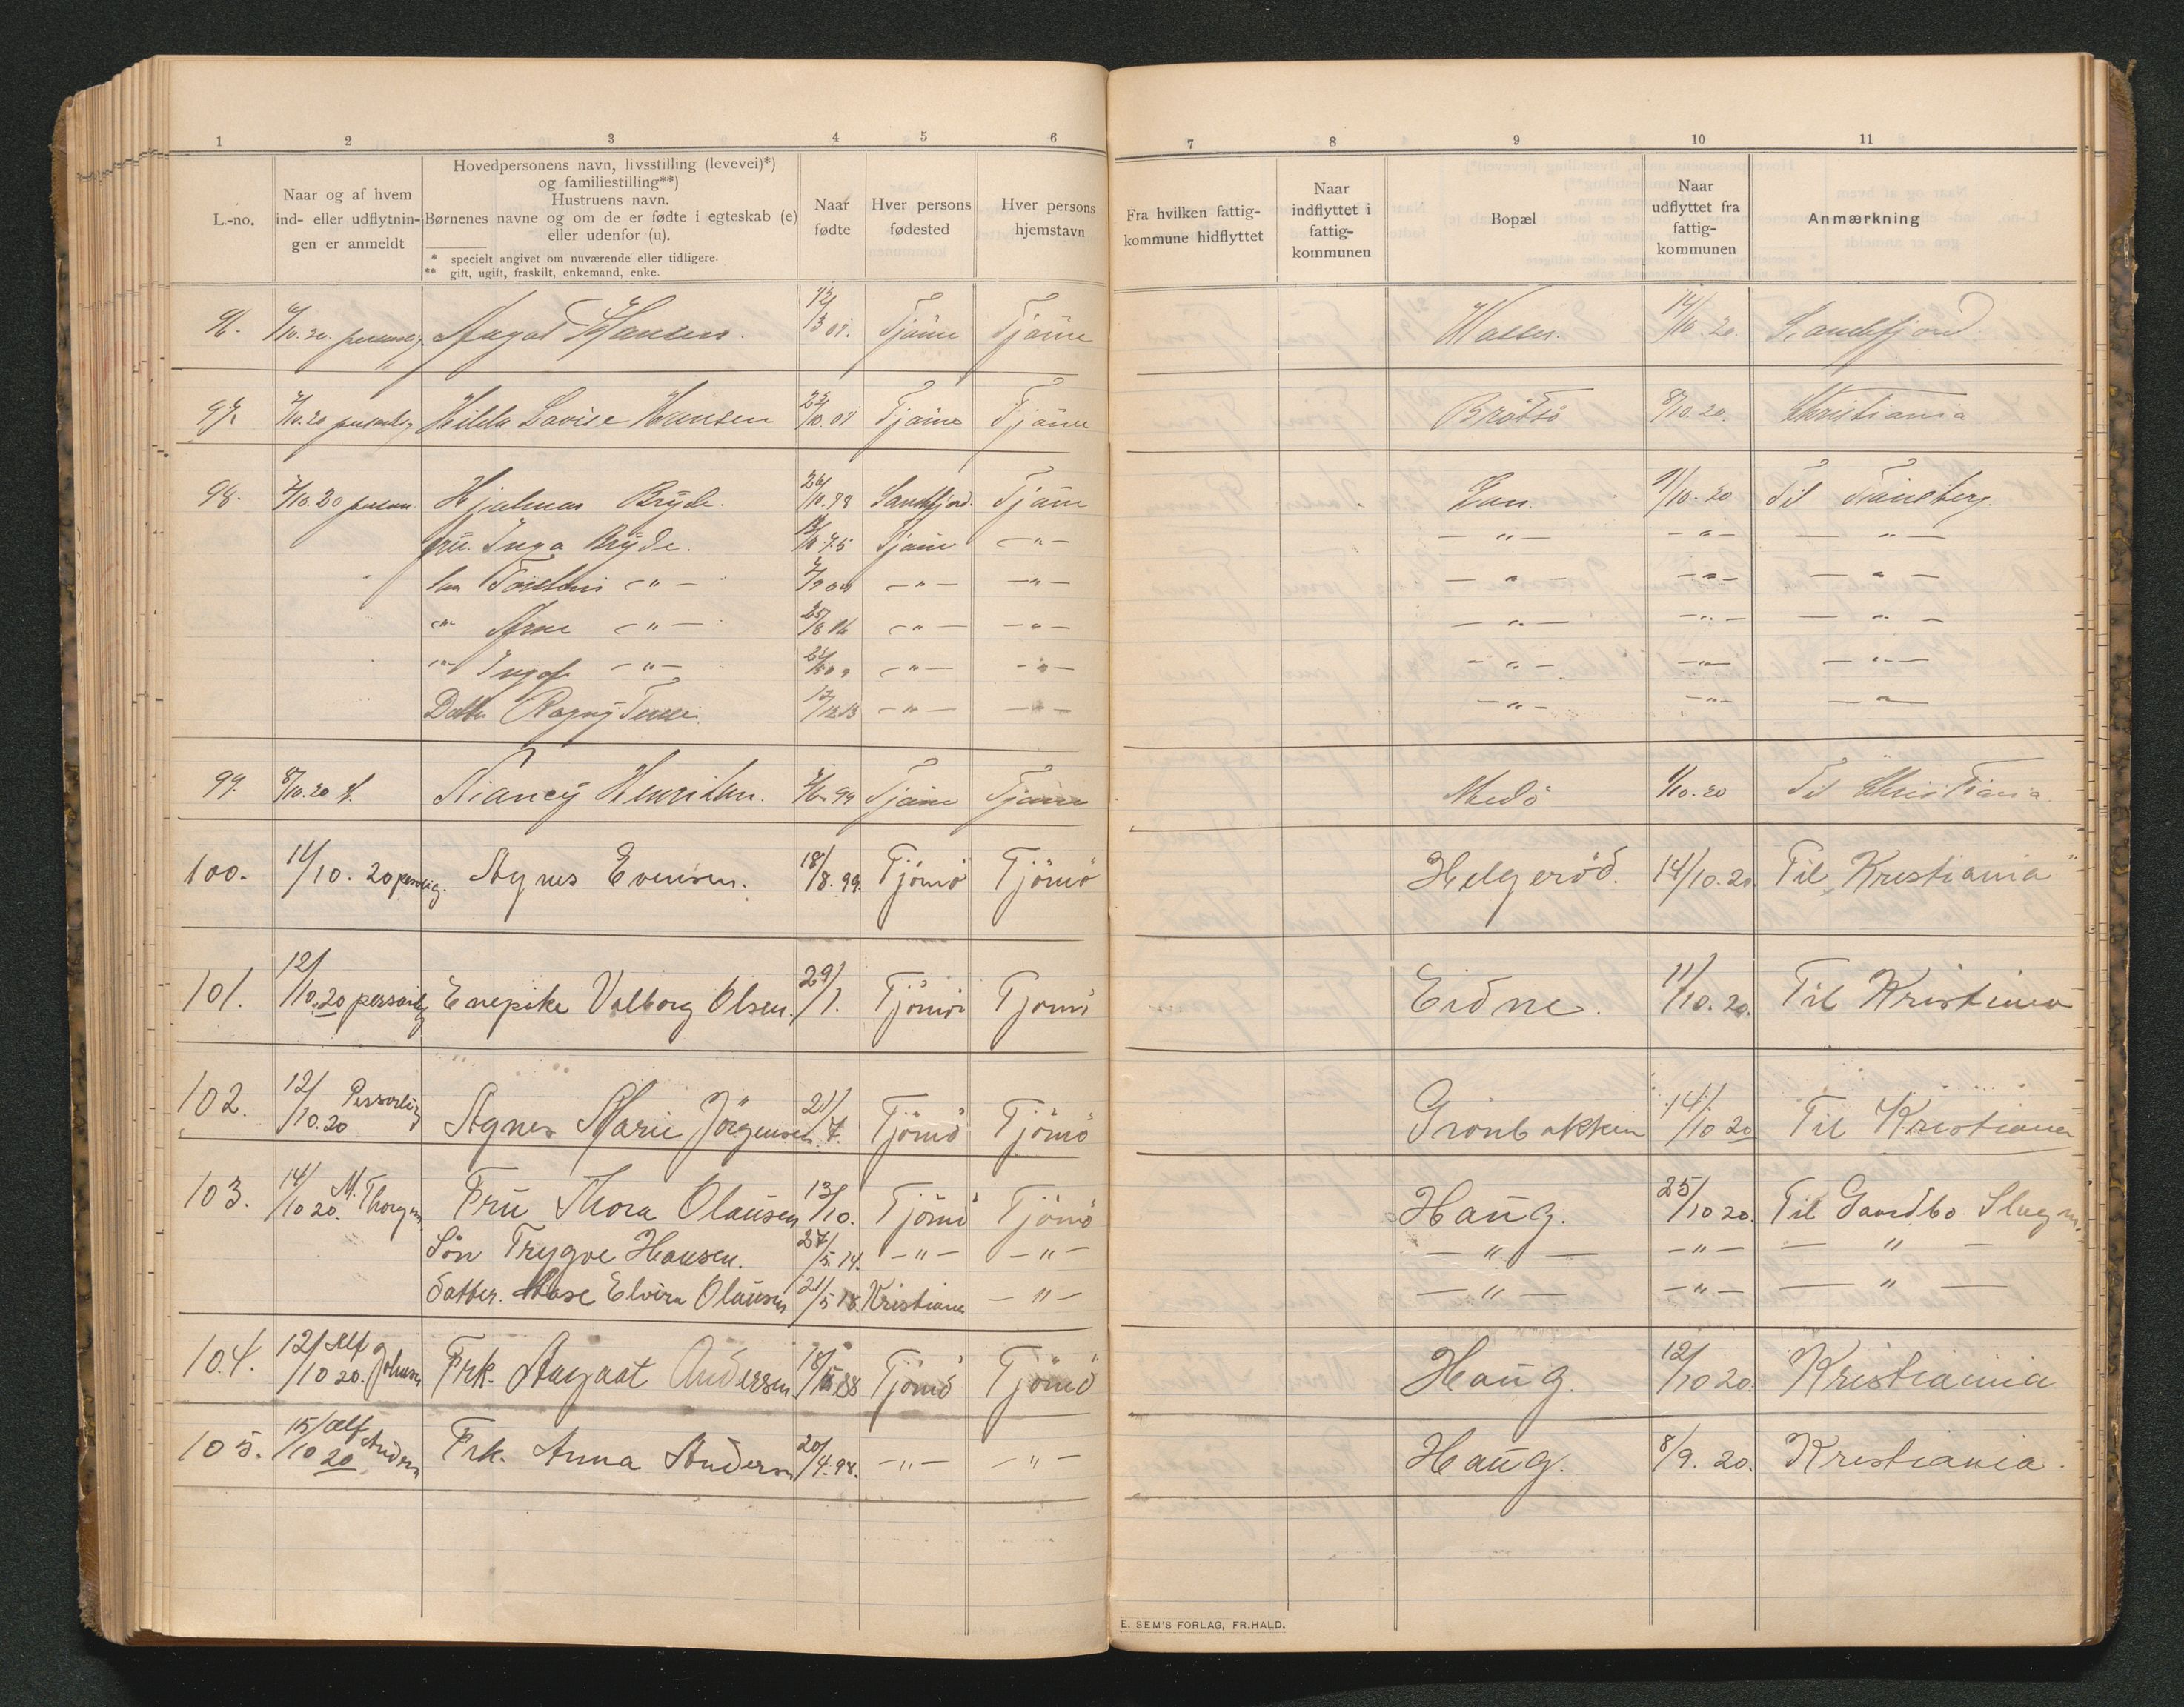 1 2 3 4 5 6 7 8 9 10 11
L.-no.
Naar og af hvem
ind- eller udflytnin-
gen er anmeldt
Hovedpersonens navn, livsstilling (levevei)*)
og familiestilling**)
Hustruens navn.
Børnenes navne og om de er fødte i egteskab (e)
eller udenfor (u).
* specielt angivet om nuværende eller tidligere.
** gift, ugift, fraskilt, enkemand, enke.
Naar
fødte
Hver persons
fødested
Hver persons
hjemstavn
Fra hvilken fattig-
kommune hidflyttet
Naar
indflyttet i
fattig-
kommunen
Bopæl
Naar
udflyttet fra
fattig-
kommunen
Anmærkning
96. Hansen. Tjöme Tjöme 14/10. 20. Sandefjord
97. Hilda Lovise Hansen 23/10. 01 Tjöme Tjöme Bröttö 8/10. 20. Christiania
98. 7/10. 20 Hjalmar Bryde. Sandefjord. Tjöme 9/10. 20 Til Tönsberg.
fru. Inga Bryde. Tjöme -"- -"- -"- -"-
-"- -"- -"- -"- -"- -"-
-"- Arne -"- 25/8 06 -"- -"- -"- -"- -"-
-"- -"- -"- -"- -"- -"- -"-
Datter 12/12 13 -"- -"- -"- -"- -"-
99. 8/10. 20 Nancy Henriksen. Tjöme Tjöme Medö 1/10. 20 Til Christiania
100. 11/10. 20 personlig. Agnes Evensen. 18/8. 99. Tjömö Tjömö Helgeröd. 14/10. 20 Til Kristiania
101. 12/10. 20 personlig Enepike Valborg Olsen. 29/1. Tjömö Tjömö Eidne. 11/10. 20. Til Kristiania
102. 12/10. 20 Personlig Agnes Marie Jörgensen. 21/7. Tjömö Tjömö Grönbakken 14/10 20 Til Kristiania
103. 14/10 20. M. Frü Thora Olaüsen 13/10. Tjömö Tjömö Haüg. 25/10 20. Til
Sön Trygve Hansen. 27/5. 14. -"- -"- -"- -"- -"-
Datter. Aase Elvira Olaüsen 21/5 18. Kristiania -"- -"- -"- -"-
104. 12/10 20. Alf Johansen Frk. Andersen Tjömö Tjömö Haüg. 12/10 20. Kristiania
105. 15/10 20 Alf Andersen Frk. Anna Andersen 20/4. 98. -"- -"- Haüg. 8/9. 20. Kristiania.
E. SEM'S FORLAG, FR.HALD.